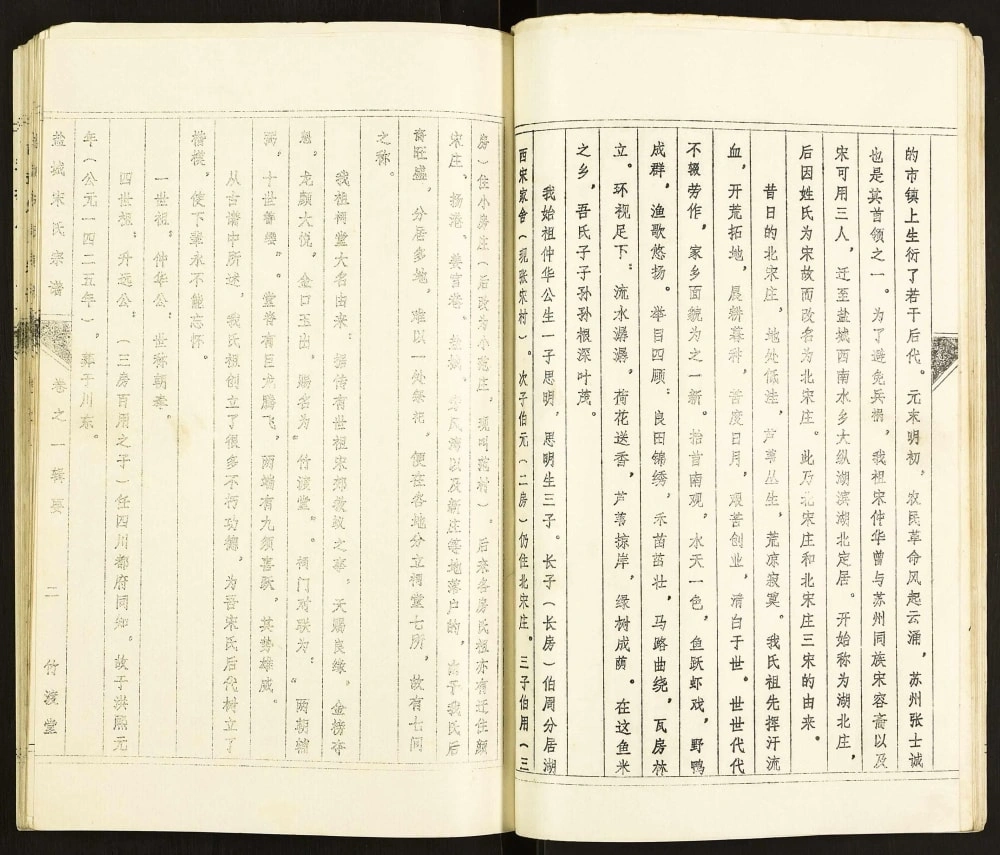 的市镇上生衍了若干后代。元末明初，农民革命风起云涌，苏州张士诚
也是其首领之一。为了避免兵祸，我祖宋仲华曾与苏州同族宋容斋以及
宋可用三人，迁至盐城西南水乡大纵湖滨湖北定居。开始称为湖北庄，
后因姓氏为宋故而改名为北宋庄。此乃北宋庄和北宋庄三宋的由来。
昔日的北宋庄，地处低洼，芦苇丛生，荒凉寂寞。我氏祖先挥汗流
血，开荒拓地，晨耕暮种，苦度日月，艰苦创业，清白于世。世世代代
不辍劳作，家乡面貌为之一新。抬首南观，水天一色，鱼跃虾戏，野鸭
成群，渔歌悠扬。举目四顾：良田锦绣，禾苗茁壮，马路曲绕，瓦房林
立。环视足下：流水潺潺，荷花送香，芦苇掠岸，绿树成荫。在这鱼米
之乡，吾氏子子孙孙根深叶茂。
我始祖仲华公生一子思明，思明生三子。长子（长房）伯周分居湖
西宋家舍（现张宋村）。次子伯元（二房）仍住北宋庄。三子伯用（三
房）住小房庄（后改为小 庄，现叫 村）。后来各房氏祖亦有迁住颜
宋庄、杨港、 官港、盐城、 以及新庄等地落户的，由于我氏后
裔旺盛，分居多地，难以一处祭祀，便在各地分立祠堂七所，故有七祠
之称。
我祖祠堂大名由来：据传有世祖宋郊救蚁之举，天赐良缘，金榜夺
魁，龙颜大悦，金口玉出，赐名为“竹渡堂”。祠门对联为：“两朝辅
弼，十世簪缨”。堂脊有巨龙腾飞，两端有九须喜跃，其势雄威。
从古谱中所述，我氏祖创立了很多不朽功德，为吾宋氏后代树立了
楷模，使下辈永不能忘怀。
一世祖，仲华公，世称朝奉。
四世祖，升远公，（三房百用之子）任四川都府同知。故于洪熙元
年（公元一四二五年），葬于川东。
盐城宋氏宗谱 卷之一辑要 二 竹渡堂